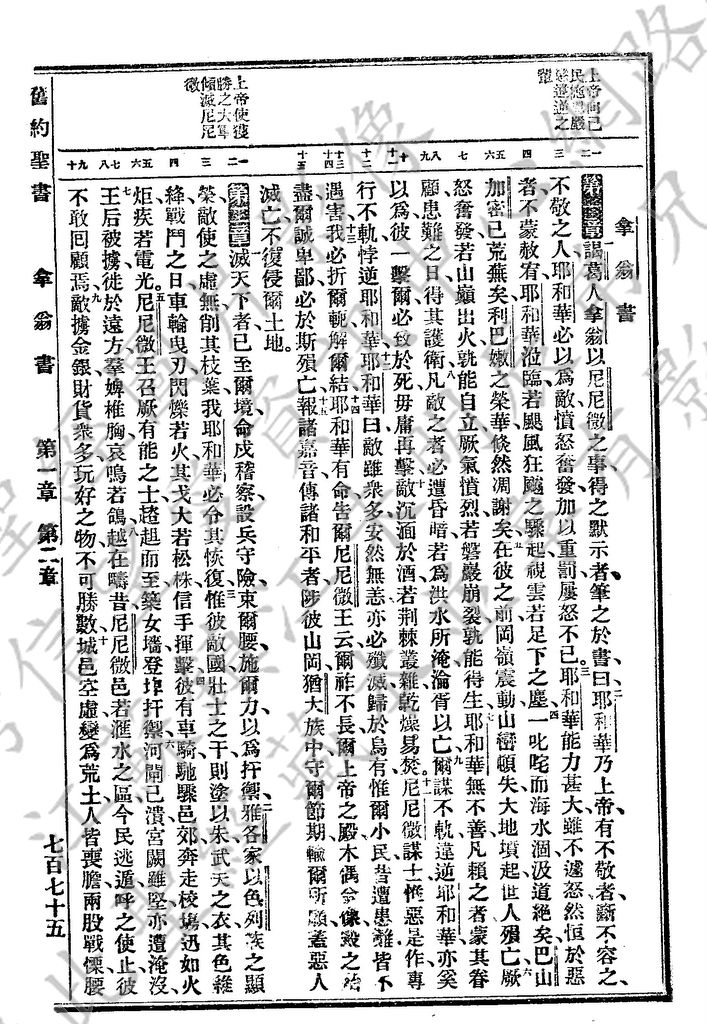 拿翁書
第一章謁葛人拿翁以尼尼微之事得之默示者筆之於書曰耶和華乃上帝有不敬者斷不容之
不敬之人耶和華必以爲敵憤怒奮發加以重罰屢怒不已耶和華能力甚大雖不遽怒然恒於惡
者不蒙赦宥耶和華涖臨若颶風狂飈之驟起視雲若足下之塵一叱咤而海水涸汲道絕矣巴山
加密已荒蕪矣利巴嫩之榮華倐然凋謝矣在彼之前岡嶺震動山巒頓失大地墳起世人殞亡厥
怒奮發若山巔出火孰能自立厥氣憤烈若磐巖崩裂孰能得生耶和華無不善凡賴之者蒙其眷
顧患難之日得其護衛凡敵之者必遭昏暗若爲洪水所淹淪胥以亡爾謀不軌違逆耶和華亦奚
以爲彼一擊爾必致於死毋庸再擊敵沉湎於酒若荆棘叢雜乾燥易焚尼尼微謀士惟惡是作專
行不軌悖逆耶和華耶和華曰敵雖衆多安然無恙亦必殲滅歸於烏有惟爾小民昔遭患難皆不
遇害我必折爾軛解爾結耶和華有命告爾尼尼微王云爾祚不長爾上帝之殿木偶金像毀之殆
盡爾誠卑鄙必於斯殞亡報諸嘉音傳諸和平者陟彼山岡猶大族中守爾節期輸爾所願蓋惡人
滅亡不復侵爾土地
第二章滅天下者已至爾境命戍稽察設兵守險束爾腰施爾力以爲扞禦雅各家以色列族之顯
榮敵使之虛無削其枝葉我耶和華必令其恢復惟彼敵國壯士之干則塗以朱武夫之衣其色維
絳戰鬥之日車輪曳刃閃爍若火其戈大若松株信手揮擊彼有車騎馳驟邑郊奔走棱塲迅如火
炬疾若電光尼尼微王召厥有能之士趦趄而至築女墻登埤扞禦河閘已潰宮闕雖堅亦遭淹沒
王后被擄徙於遠方羣婢椎胸哀鳴若鴿越在疇昔尼尼微邑若滙水之區今民逃遁呼之使止彼
不敢回顧焉敵擄金銀財貨衆多玩好之物不可勝數城邑空虛變爲荒土人皆喪膽兩股戰慄腰
上帝使獲
勝之大軍
傾滅尼尼
微
舊約聖書
拿翁書
第一章 第二章
七百七十五